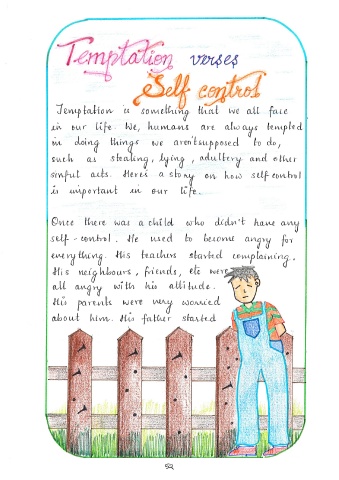 Temptation verses
Self control
Temptation is something that we all face
in our life. We, humans are always tempted
in doing things we aren't supposed to do,
such as stealing, lying, adultery and other
sinful acts. Here's a story on how self control
is important in our life.
Once there was a child who didn't have any
self-control. He used to become angry for
everything. His teachers started complaining.
His neighbours, friends, etc were
all angry with his attitude.
His parents were very worried
about him. His father started
52